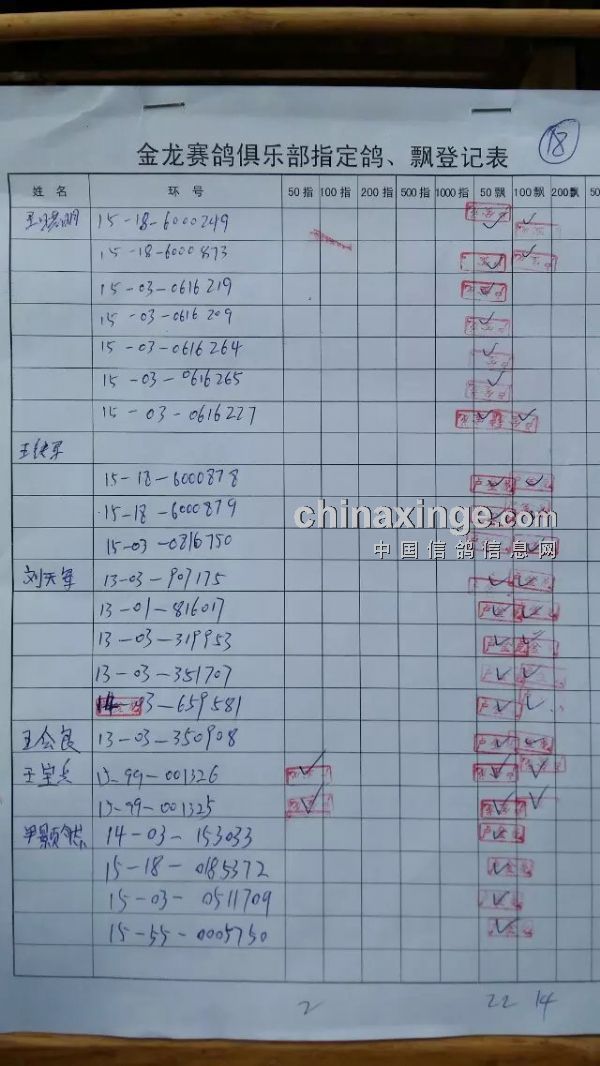 18
金龙赛鸽俱乐部指定鸽、飘登记表
姓名 环号 50指 100指 200指 500指 1000指 50飘 100飘 200飘 50
15-18-6000249
15-18-6000873
15-03-0616219
15-03-0616209
15-03-0616264
15-03-0616265
15-03-0616227
王铁军
15-18-6000878
15-18-6000879
chinaxinge.com
15-03-0216750
中国信鸽信息网
刘天军 13-03-907175
13-01-816017
13-03-319953
13-03-351707
03-659581
王会良 13-03-350908
王宝兵 15-99-001326
15-99-001325
14-03-153033
15-18-0185372
15-03-0511709
15-55-0005750
2 22 14